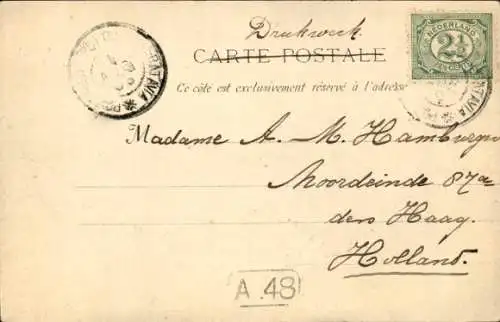 Drukwerk
CARTE POSTALE
Ce côté est exclusivement réservé à l'adresse
NEDERLAND
2½
BATAVIA
Madame A. M. Hamburger
Noordeinde 87a
den Haag.
Holland.
A.48